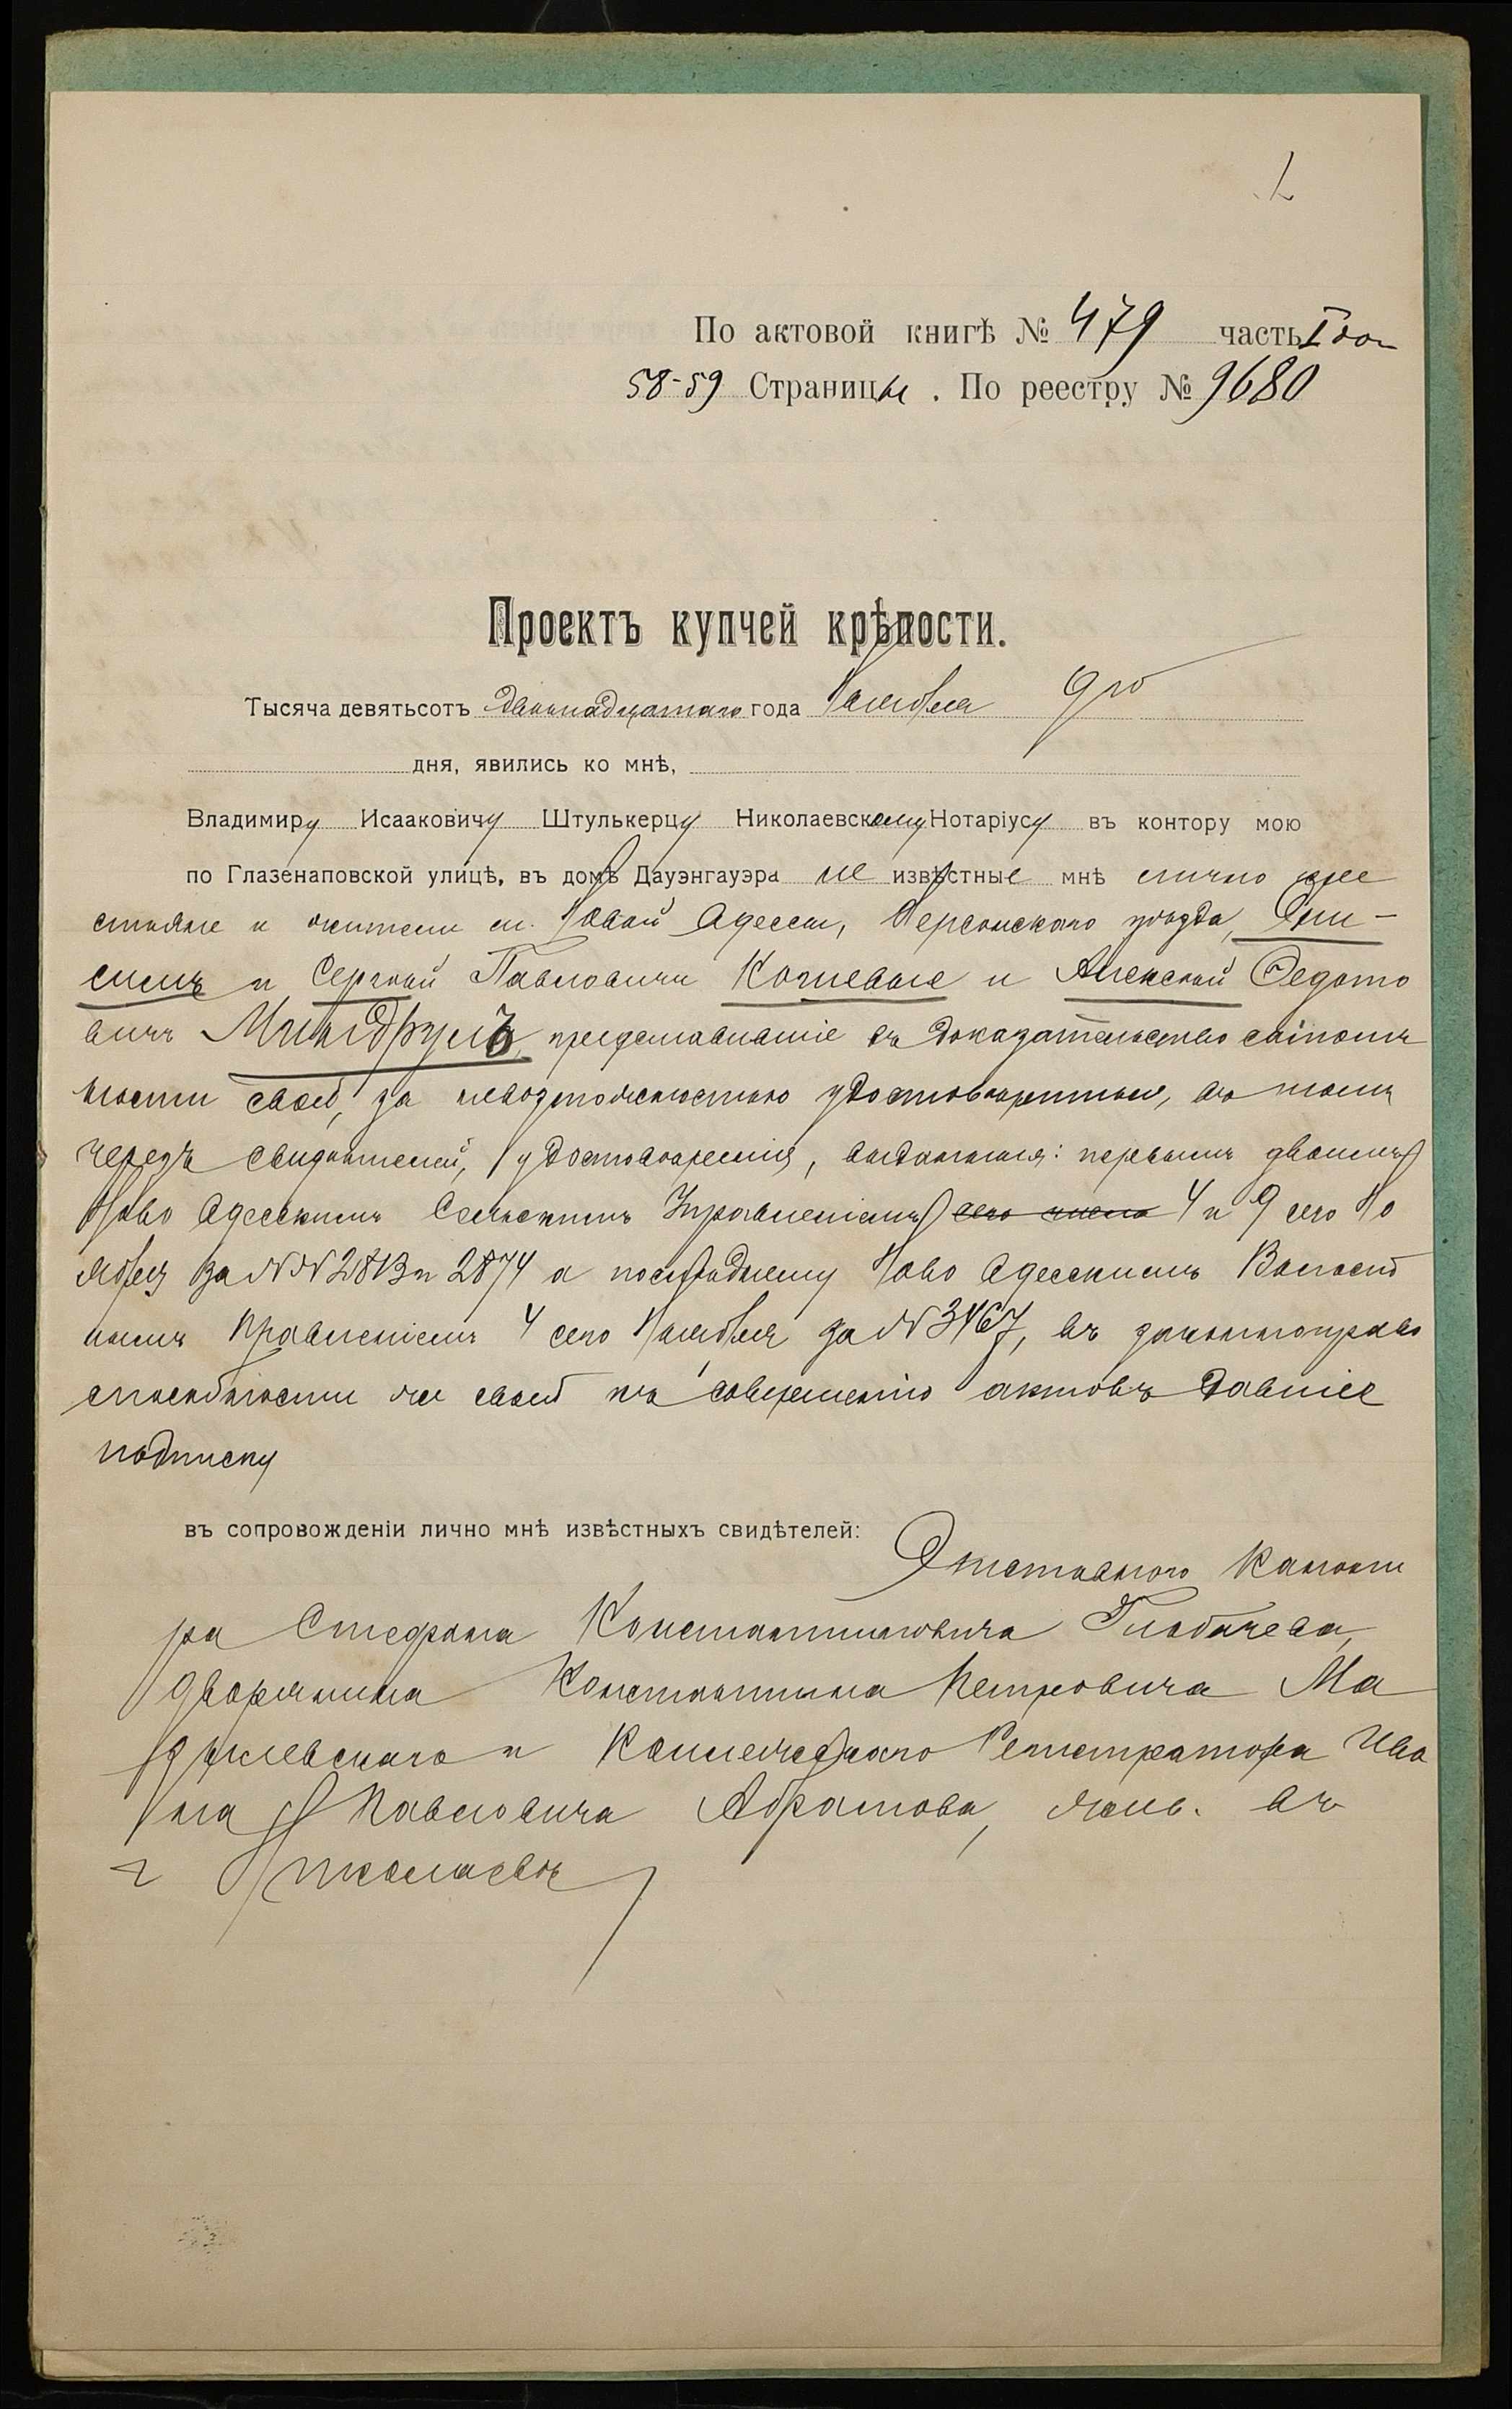 1
По актовой книгѣ № 479 часть I доп
58-59 Страницы. По реестру № 9680
Проектъ купчей крѣпости.
Тысяча девятьсотъ двѣнадцатаго года Ноября 9го
дня, явились ко мнѣ,
Владимиру Исааковичу Штулькерцу Николаевскому Нотаріусу въ контору мою
по Глазенаповской улицѣ, въ домѣ Дауэнгауэра не извѣстные мнѣ лично кре
стьяне и жители м. Новой Одессы, Херсонскаго уѣзда, Они-
симъ и Сергѣй Павловичи Кочневые и Алексѣй Федото
вичъ представившіе въ доказательство самолич
ности своей, за невозможностью удостовѣренія, въ томъ
черезъ свидѣтелей, удостовѣренія, выданныя: первымъ двоимъ
Ново Одесскимъ Сельскимъ Управленіемъ сего числа 4 и 9 сего Но
ября за №№ 2813 и 2874 а послѣднему Ново Одесскимъ Волост
нымъ Правленіемъ 4 сего Ноября за № 3467, въ законноправо
способности же своей къ совершенію актовъ давшіе
подписку
въ сопровожденіи лично мнѣ извѣстныхъ свидѣтелей:
Отставного Канони
ра Стефана Константиновича Глобачева,
дворянина Константина Петровича Ма
и Коллежскаго Регистратора Ива
на Павловича Абрамова, жив. въ
г Николаевѣ